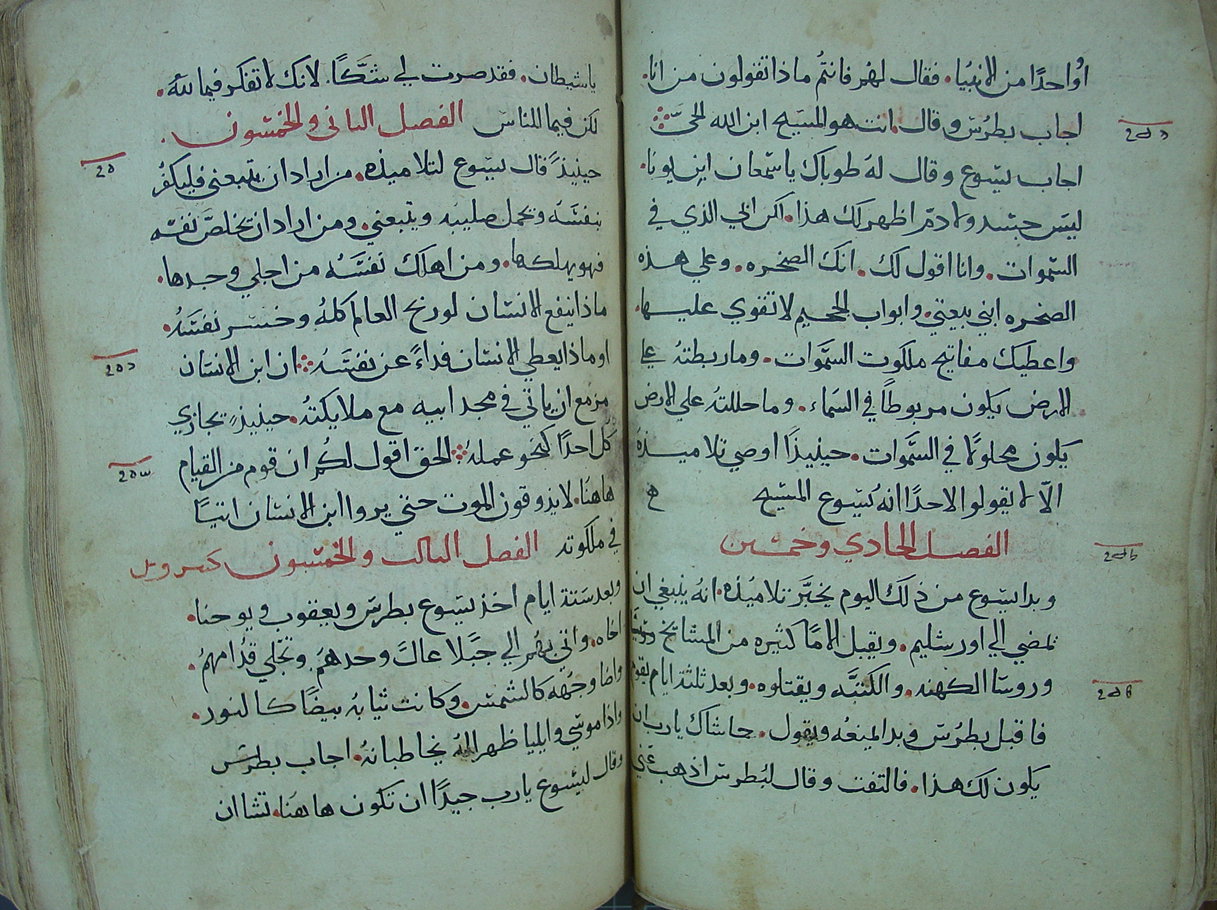 أو احدًا من الانبيا. فقال لهم فانتم ماذا تقولون من انا.
اجاب بطرس وقال انت هو المسيح ابن الله الحي
اجاب يسوع وقال له طوباك ياسمعان ابن يونا.
ليس جسد ولا دم اظهر لك هذا. لكن ابي الذي في
السموات. وانا اقول لك. انك الصخره. وعلي هذه
الصخره ابني بيعتي. وابواب الجحيم لا تقوي عليها.
واعطيك مفاتيح ملكوت السموات. وما ربطته علي
الارض يكون مربوطًا في السماء. وما حللته علي الارض
يكون محلولًا في السموات. حينيذًا اوصي تلاميذه
الّا يقولوا لاحدًا انه يسوع المسيح
الفصل الحادي وخمسين
وبدا يسوع من ذلك اليوم يخبر تلاميذه. انه ينبغي ان
يمضي الي اورشليم. ويقبل الامًا كثيره من المشايخ
وروسا الكهنه. والكتبه ويقتلوه. وبعد ثلثة ايام يقوم
فاقبل بطرس وبدا يمنعه ويقول. حاشاك يارب ان
يكون لك هذا. فالتفت وقال لبطرس اذهب عني
ياشيطان. فقد صرت لي شكًا. لانك لا تفكر فيما لله.
لكن فيما للناس الفصل الثاني والخمسون.
حينيذً قال يسوع لتلاميذه. من اراد ان يتبعني فليكفر
بنفسه ويحمل صليبه ويتبعني. ومن اراد ان يخلص نفسه
فهو يهلكها. ومن اهلك نفسه من اجلي وجدها.
ماذا ينفع الانسان لو ربح العالم كله وخسر نفسه.
او ماذا يعطي الانسان فداءً عن نفسه. ان ابن الانسان
مزمع ان ياتي في مجد ابيه مع ملايكته. حينيذٍ يجازي
كل احدًا كنحو عمله. الحق اقول لكم ان قوم من القيام
هاهنا. لا يذوقون الموت حتي يروا ابن الانسان اتيًا
في ملكوته الفصل الثالث والخمسون
وبعد ستة ايام اخذ يسوع بطرس ويعقوب ويوحنا.
اخاه. واتي بهم الي جبلا عال وحدهم وتجلي قدامهم.
واضا وجهه كالشمس. وكانت ثيابه بيضًا كالنور.
واذا موسي وايليا ظهرا له يخاطبانه. اجاب بطرس
وقال ليسوع يارب جيدًا ان نكون هاهنا. تشا ان